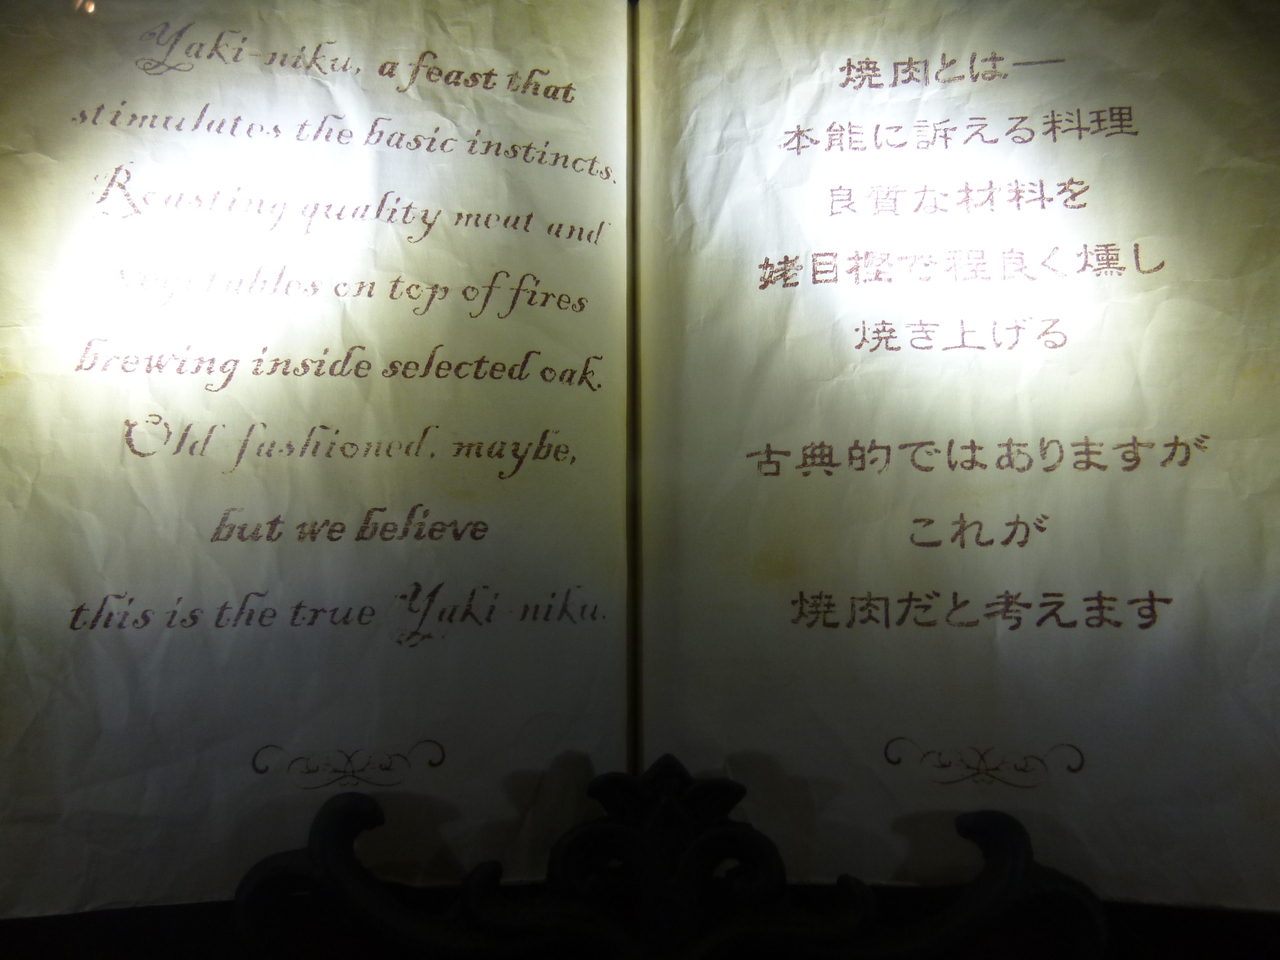 Yaki-niku, a feast that
stimulates the basic instincts.
Roasting quality meat and
vegetables on top of fires
brewing inside selected oak.
Old fashioned, maybe,
but we believe
this is the true Yaki-niku.
焼肉とは―
本能に訴える料理
良質な材料を
姥目樫で程良く燻し
焼き上げる
古典的ではありますが
これが
焼肉だと考えます